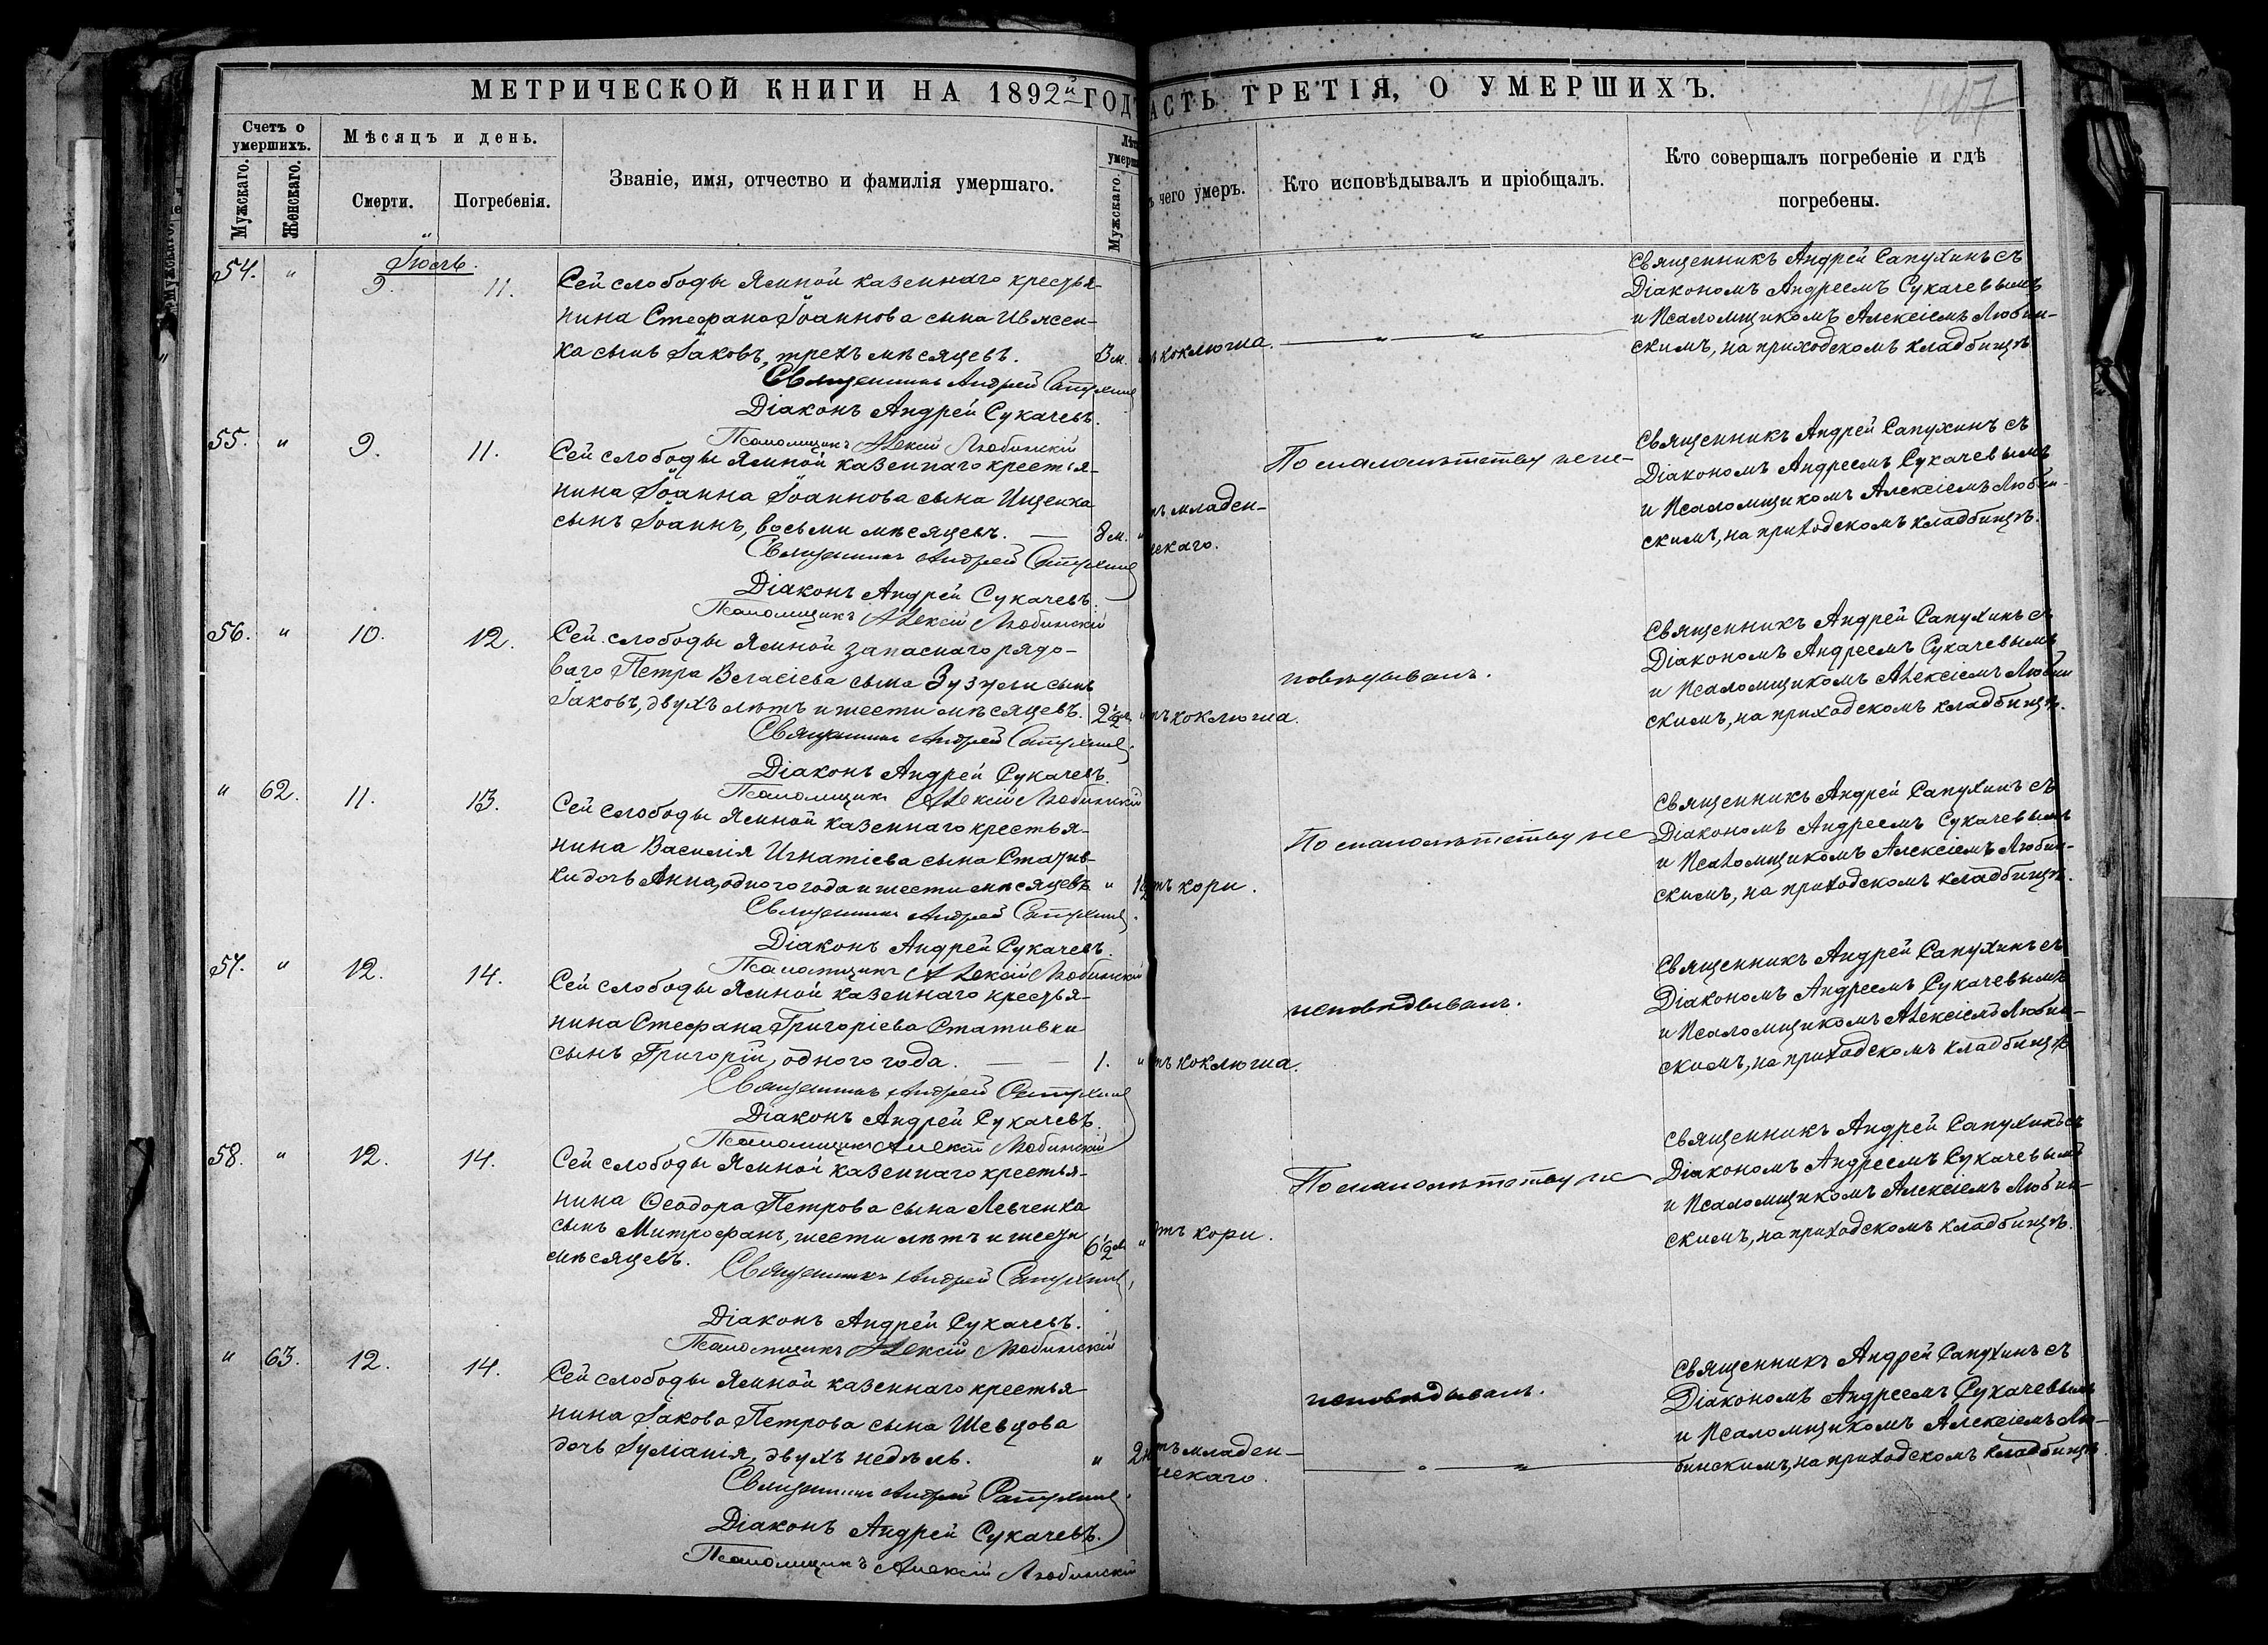 МЕТРИЧЕСКОЙ КНИГИ НА 1892й ГОДЪ
Счетъ о умершихъ.
Мужскаго.
Женскаго.
Мѣсяцъ и день.
Смерти.
Погребенія.
Званіе, имя, отчество и фамилія умершаго.
Мужскаго.
54. " Іюль. 9. 11.
Сей слободы Ямной казеннаго крестья-
нина Стефана Іоаннова сына Ивасен-
ка сынъ Іаковъ, трехъ мѣсяцевъ. 3 м.
Священникъ Андрей Сапухинъ
Діаконъ Андрей Сукачевъ.
Псаломщикъ Алексій Любинскій
55. " 9. 11.
Сей слободы Ямной казеннаго крестья-
нина Іоанна Іоаннова сына Ищенка
сынъ Іоаннъ, восьми мѣсяцевъ. — 8 м. "
Священникъ Андрей Сапухинъ
Діаконъ Андрей Сукачевъ.
Псаломщикъ Алексій Любинскій
56. " 10. 12.
Сей слободы Ямной запаснаго рядо-
ваго Петра Власіева сына Зузули сынъ
Іаковъ, двухъ лѣтъ и шести мѣсяцевъ. 2½ "
Священникъ Андрей Сапухинъ
Діаконъ Андрей Сукачевъ.
Псаломщикъ Алексій Любинскій
" 62. 11. 13.
Сей слободы Ямной казеннаго крестья-
нина Василія Игнатіева сына Статив-
ки дочь Анна, одного года и шести мѣсяцевъ "
Священникъ Андрей Сапухинъ
Діаконъ Андрей Сукачевъ.
Псаломщикъ Алексій Любинскій
57. " 12. 14.
Сей слободы Ямной казеннаго крестья-
нина Стефана Григоріева Стативки
сынъ Григорій, одного года. — — 1. "
Священникъ Андрей Сапухинъ
Діаконъ Андрей Сукачевъ.
Псаломщикъ Алексій Любинскій
58. " 12. 14.
Сей слободы Ямной казеннаго крестья-
нина Ѳеодора Петрова сына Левченка
сынъ Митрофанъ, шести лѣтъ и шести
мѣсяцевъ. 6½ "
Священникъ Андрей Сапухинъ
Діаконъ Андрей Сукачевъ.
Псаломщикъ Алексій Любинскій
" 63. 12. 14.
Сей слободы Ямной казеннаго крестья-
нина Іакова Петрова сына Шевцова
дочь Іуліанія, двухъ недѣль. " 2
Священникъ Андрей Сапухинъ
Діаконъ Андрей Сукачевъ.
Псаломщикъ Алексій Любинскій
АСТЬ ТРЕТІЯ, О УМЕРШИХЪ.
чего умеръ.
Кто исповѣдывалъ и пріобщалъ.
Кто совершалъ погребеніе и гдѣ
погребены.
коклюша. — " — " —
Священникъ Андрей Сапухинъ съ
Діакономъ Андреемъ Сукачевымъ
и Псаломщикомъ Алексіемъ Любин-
скимъ, на приходскомъ кладбищѣ
младен-
ческаго.
По малолѣтству не ис-
Священникъ Андрей Сапухинъ съ
Діакономъ Андреемъ Сукачевымъ
и Псаломщикомъ Алексіемъ Любин-
скимъ, на приходскомъ кладбищѣ.
тъ коклюша.
повѣдыванъ.
Священникъ Андрей Сапухинъ съ
Діакономъ Андреемъ Сукачевымъ
и Псаломщикомъ Алексіемъ Любин
скимъ, на приходскомъ кладбищѣ.
тъ кори.
По малолѣтству не
Священникъ Андрей Сапухинъ съ
Діакономъ Андреемъ Сукачевымъ
и Псаломщикомъ Алексіемъ Любин-
скимъ, на приходскомъ кладбищѣ.
тъ коклюша.
исповѣдыванъ.
Священникъ Андрей Сапухинъ съ
Діакономъ Андреемъ Сукачевымъ
и Псаломщикомъ Алексіемъ Любин-
скимъ, на приходскомъ кладбищѣ
тъ кори.
По малолѣтству не
Священникъ Андрей Сапухинъ съ
Діакономъ Андреемъ Сукачевымъ
и Псаломщикомъ Алексіемъ Любин-
скимъ, на приходскомъ кладбищѣ.
тъ младен-
ческаго.
исповѣдыванъ.
— " — " —
Священникъ Андрей Сапухинъ съ
Діакономъ Андреемъ Сукачевымъ
и Псаломщикомъ Алексіемъ Лю-
бинскимъ, на приходскомъ кладбищѣ.